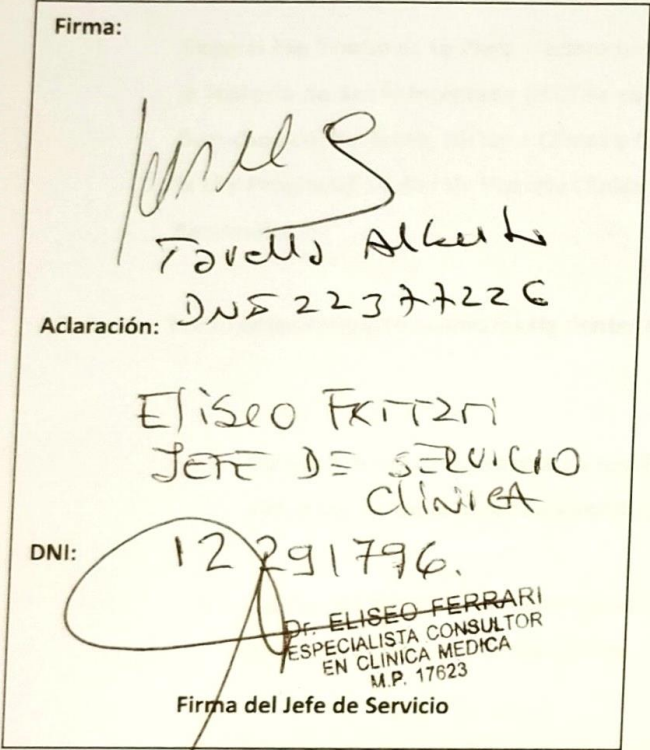 Firma:
Tavella Alberto
DNI 22377226
Aclaración:
Eliseo Ferrari
JEFE DE SERVICIO
CLINICA
DNI: 12 291796.
Dr. ELISEO FERRARI
ESPECIALISTA CONSULTOR
EN CLINICA MEDICA
M.P. 17623
Firma del Jefe de Servicio